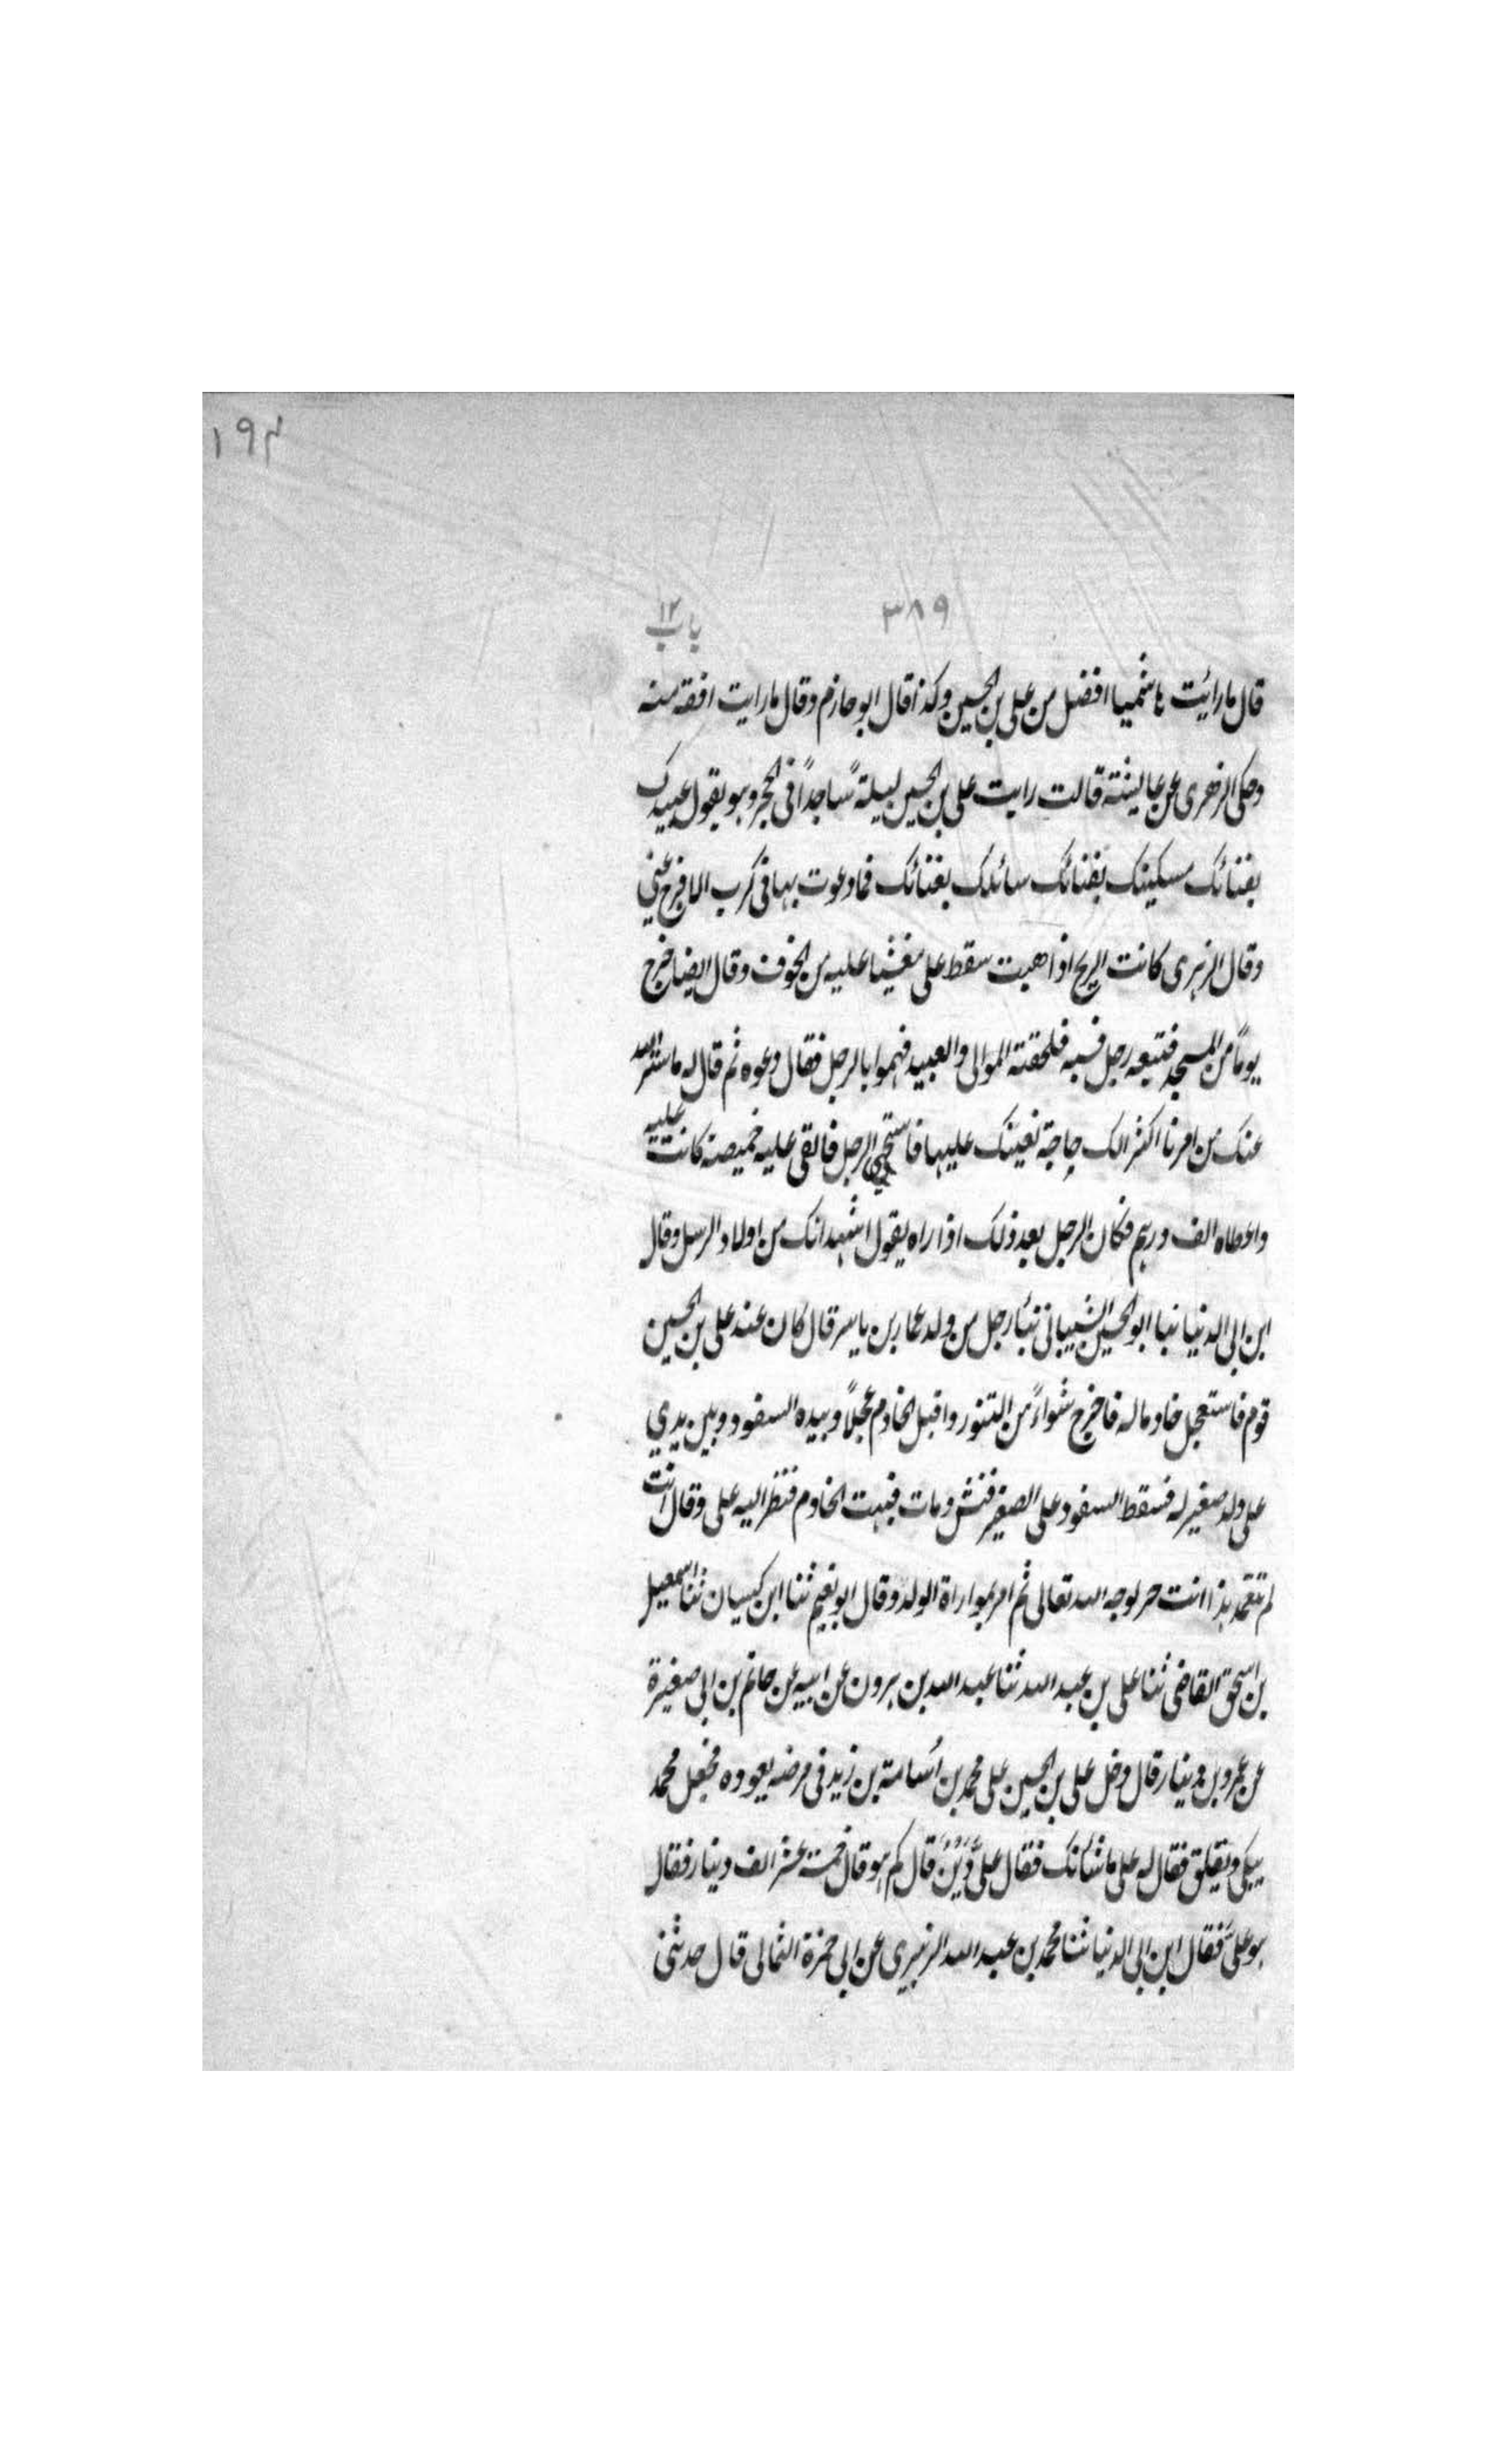 ۱۹۴
۳۸۹
باب ۱۲
قال ما رائت هاشميا افضل من علي بن الحسين وكذا قال ابو حازم وقال ما رايت افقه منه
وحكى الزهرى عن عايشة قالت رايت على بن الحسين ليلة ساجداً فى الحجر وهو يقول عبيدك
بفنائك مسكينك بفنائك سائلك بفنائك فما دعوت بها فى كرب الا فرج عنى
وقال الزهرى كانت الريح اذا هبت سقط على مغشيا عليه من الخوف وقال ايضا خرج
يوماً من المسجد فتبعه رجل فسبه فلحقته الموالى والعبيد فهموا بالرجل فقال دعوه ثم قال له ما ستر الله
عنك من امرنا اكثر الك حاجة نعينك عليها فاستحيى الرجل فالقى عليه خميصة كانت عليه
واعطاه الف درهم فكان الرجل بعد ذلك اذا راه يقول اشهد انك من اولاد الرسل وقال
ابن ابى الدنيا نبا ابو الحسين الشيبانى نبا رجل من ولد عمار بن ياسر قال كان عند على بن الحسين
قوم فاستعجل خادما له فاخرج شواءً من التنور واقبل الخادم عجلاً وبيده السفود وبين يدي
على ولد صغير له فسقط السفود على الصغير فنش ومات فبهت الخادم فنظر اليه على وقال انت
لم تتعمد هذا انت حر لوجه الله تعالى ثم امر بمواراة الولد وقال ابو نعيم ثنا ابن كيسان ثنا اسمعيل
بن اسحق القاضى ثنا على بن عبد الله ثنا عبد الله بن هرون عن ابيه عن حاتم بن ابى صغيرة
عن عمرو بن دينار قال دخل على بن الحسين على محمد بن اُسامة بن زيد فى مرضه يعوده فجعل محمد
يبكى ويقلق فقال له على ما شأنك فقال علىَّ دَيْنٌ قال كم هو قال خمسة عشر الف دينار فقال
هو علىَّ فقال ابن ابى الدنيا ثنا محمد بن عبد الله الزبيرى عن ابى حمزة الثمالى قال حدثنى